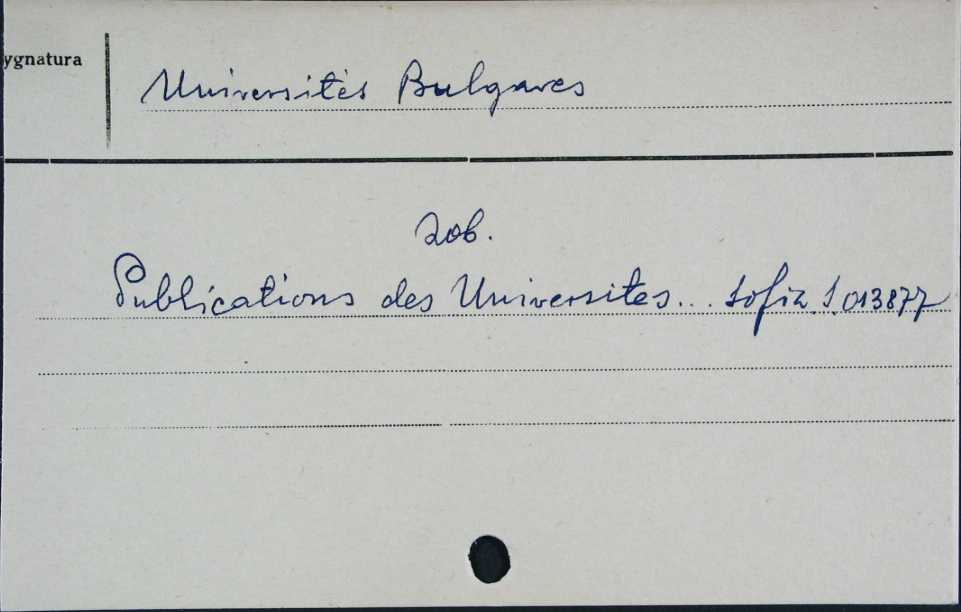 ygnatura
Universités Bulgares
zob.
Publications des Universites... Sofia S.013877